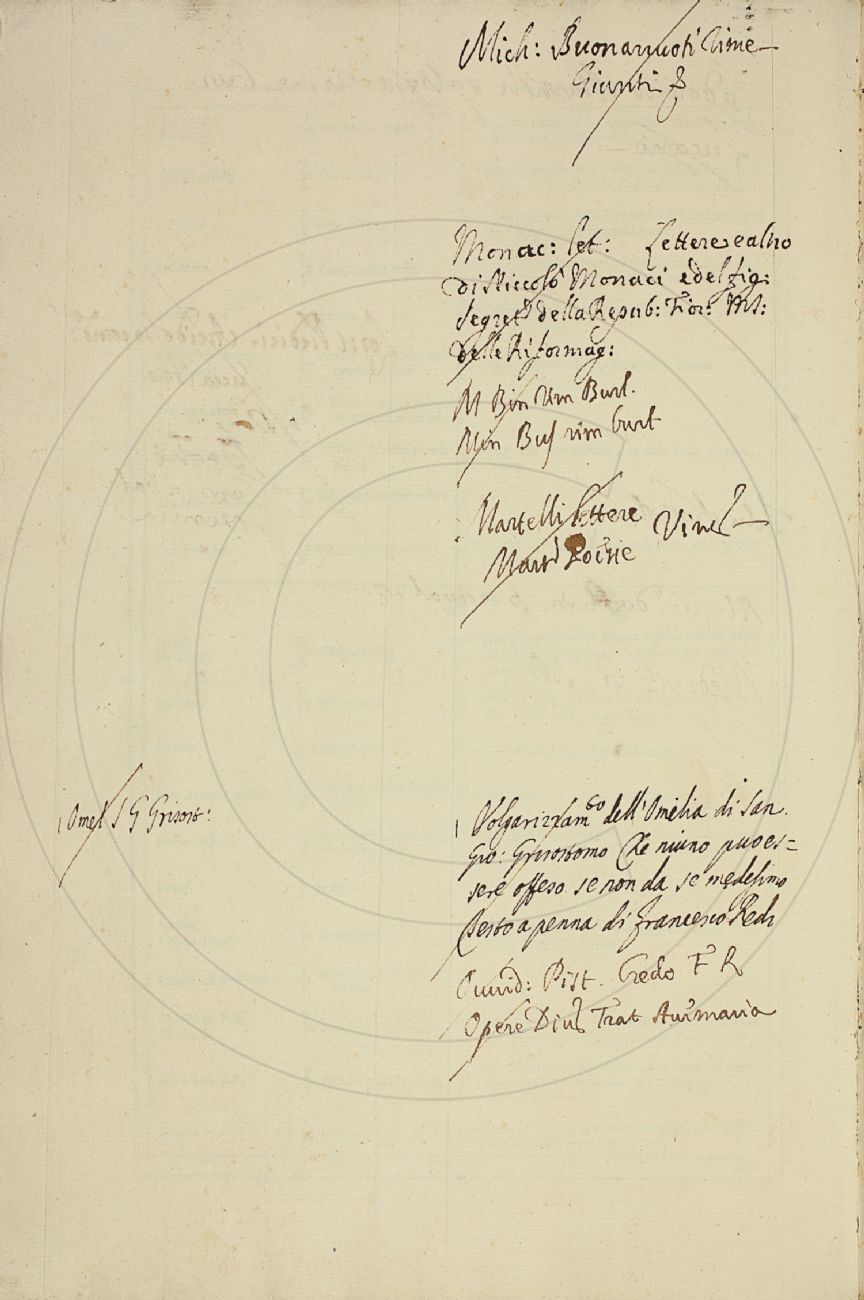 Mich: Buonarruoti Rime
Giunti
Monac: let: Lettere ealtro
di Niccolò Monaci e del fig:
segret della Repub: Fior: MS:
delle Riformag:
M Bin Rim Burl.
Min Bus rim burl
Martelli lettere
Mart Poesie
Omel S G Grisost:
Volgarizzam.to dell'Omelia di San
Gio: Grisostomo Che niuno può es=
sere offeso se non da se medesimo
Testo a penna di Francesco Redi
Ouuid: Pist. Credo F R
Opere Diu Trat Auemaria